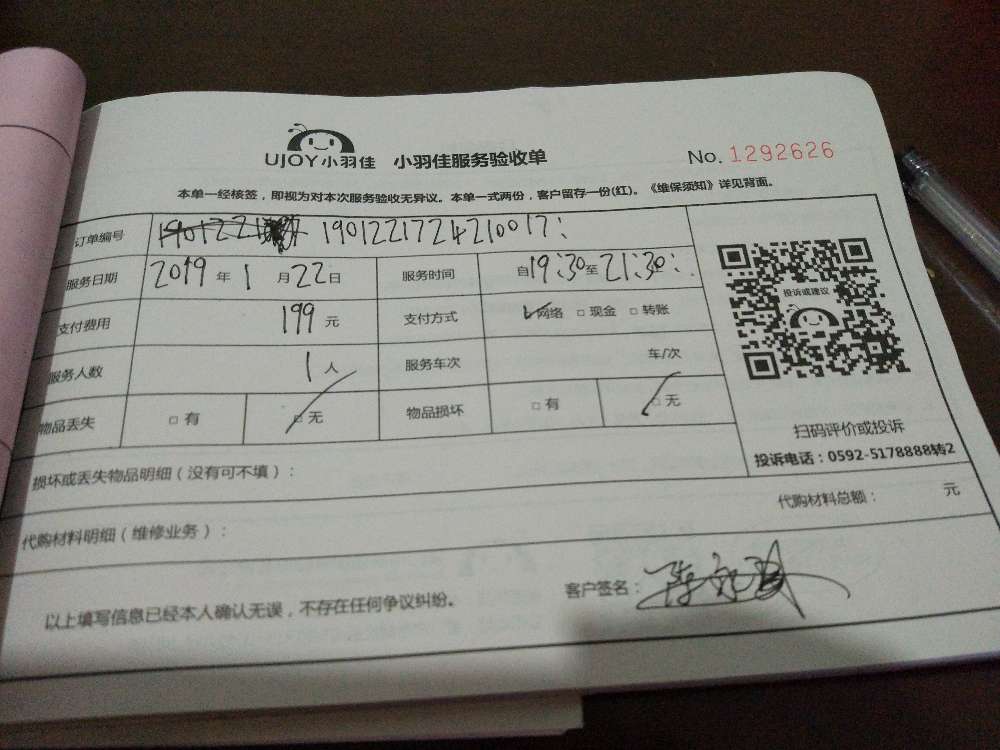 UJOY小羽佳 小羽佳服务验收单 No. 1292626
本单一经核签，即视为对本次服务验收无异议。本单一式两份，客户留存一份(红)。《维保须知》详见背面。
订单编号 1901221724210017
服务日期 2019 年 1 月 22 日 服务时间 自 19:30 至 21:30
投诉或建议
支付费用 199 元 支付方式 ☑网络 □现金 □转账
服务人数 1 人 服务车次 车/次
物品丢失 □有 ☑无 物品损坏 □有 ☑无
扫码评价或投诉
投诉电话：0592-5178888转2
损坏或丢失物品明细（没有可不填）：
代购材料明细（维修业务）： 代购材料总额： 元
以上填写信息已经本人确认无误，不存在任何争议纠纷。 客户签名：